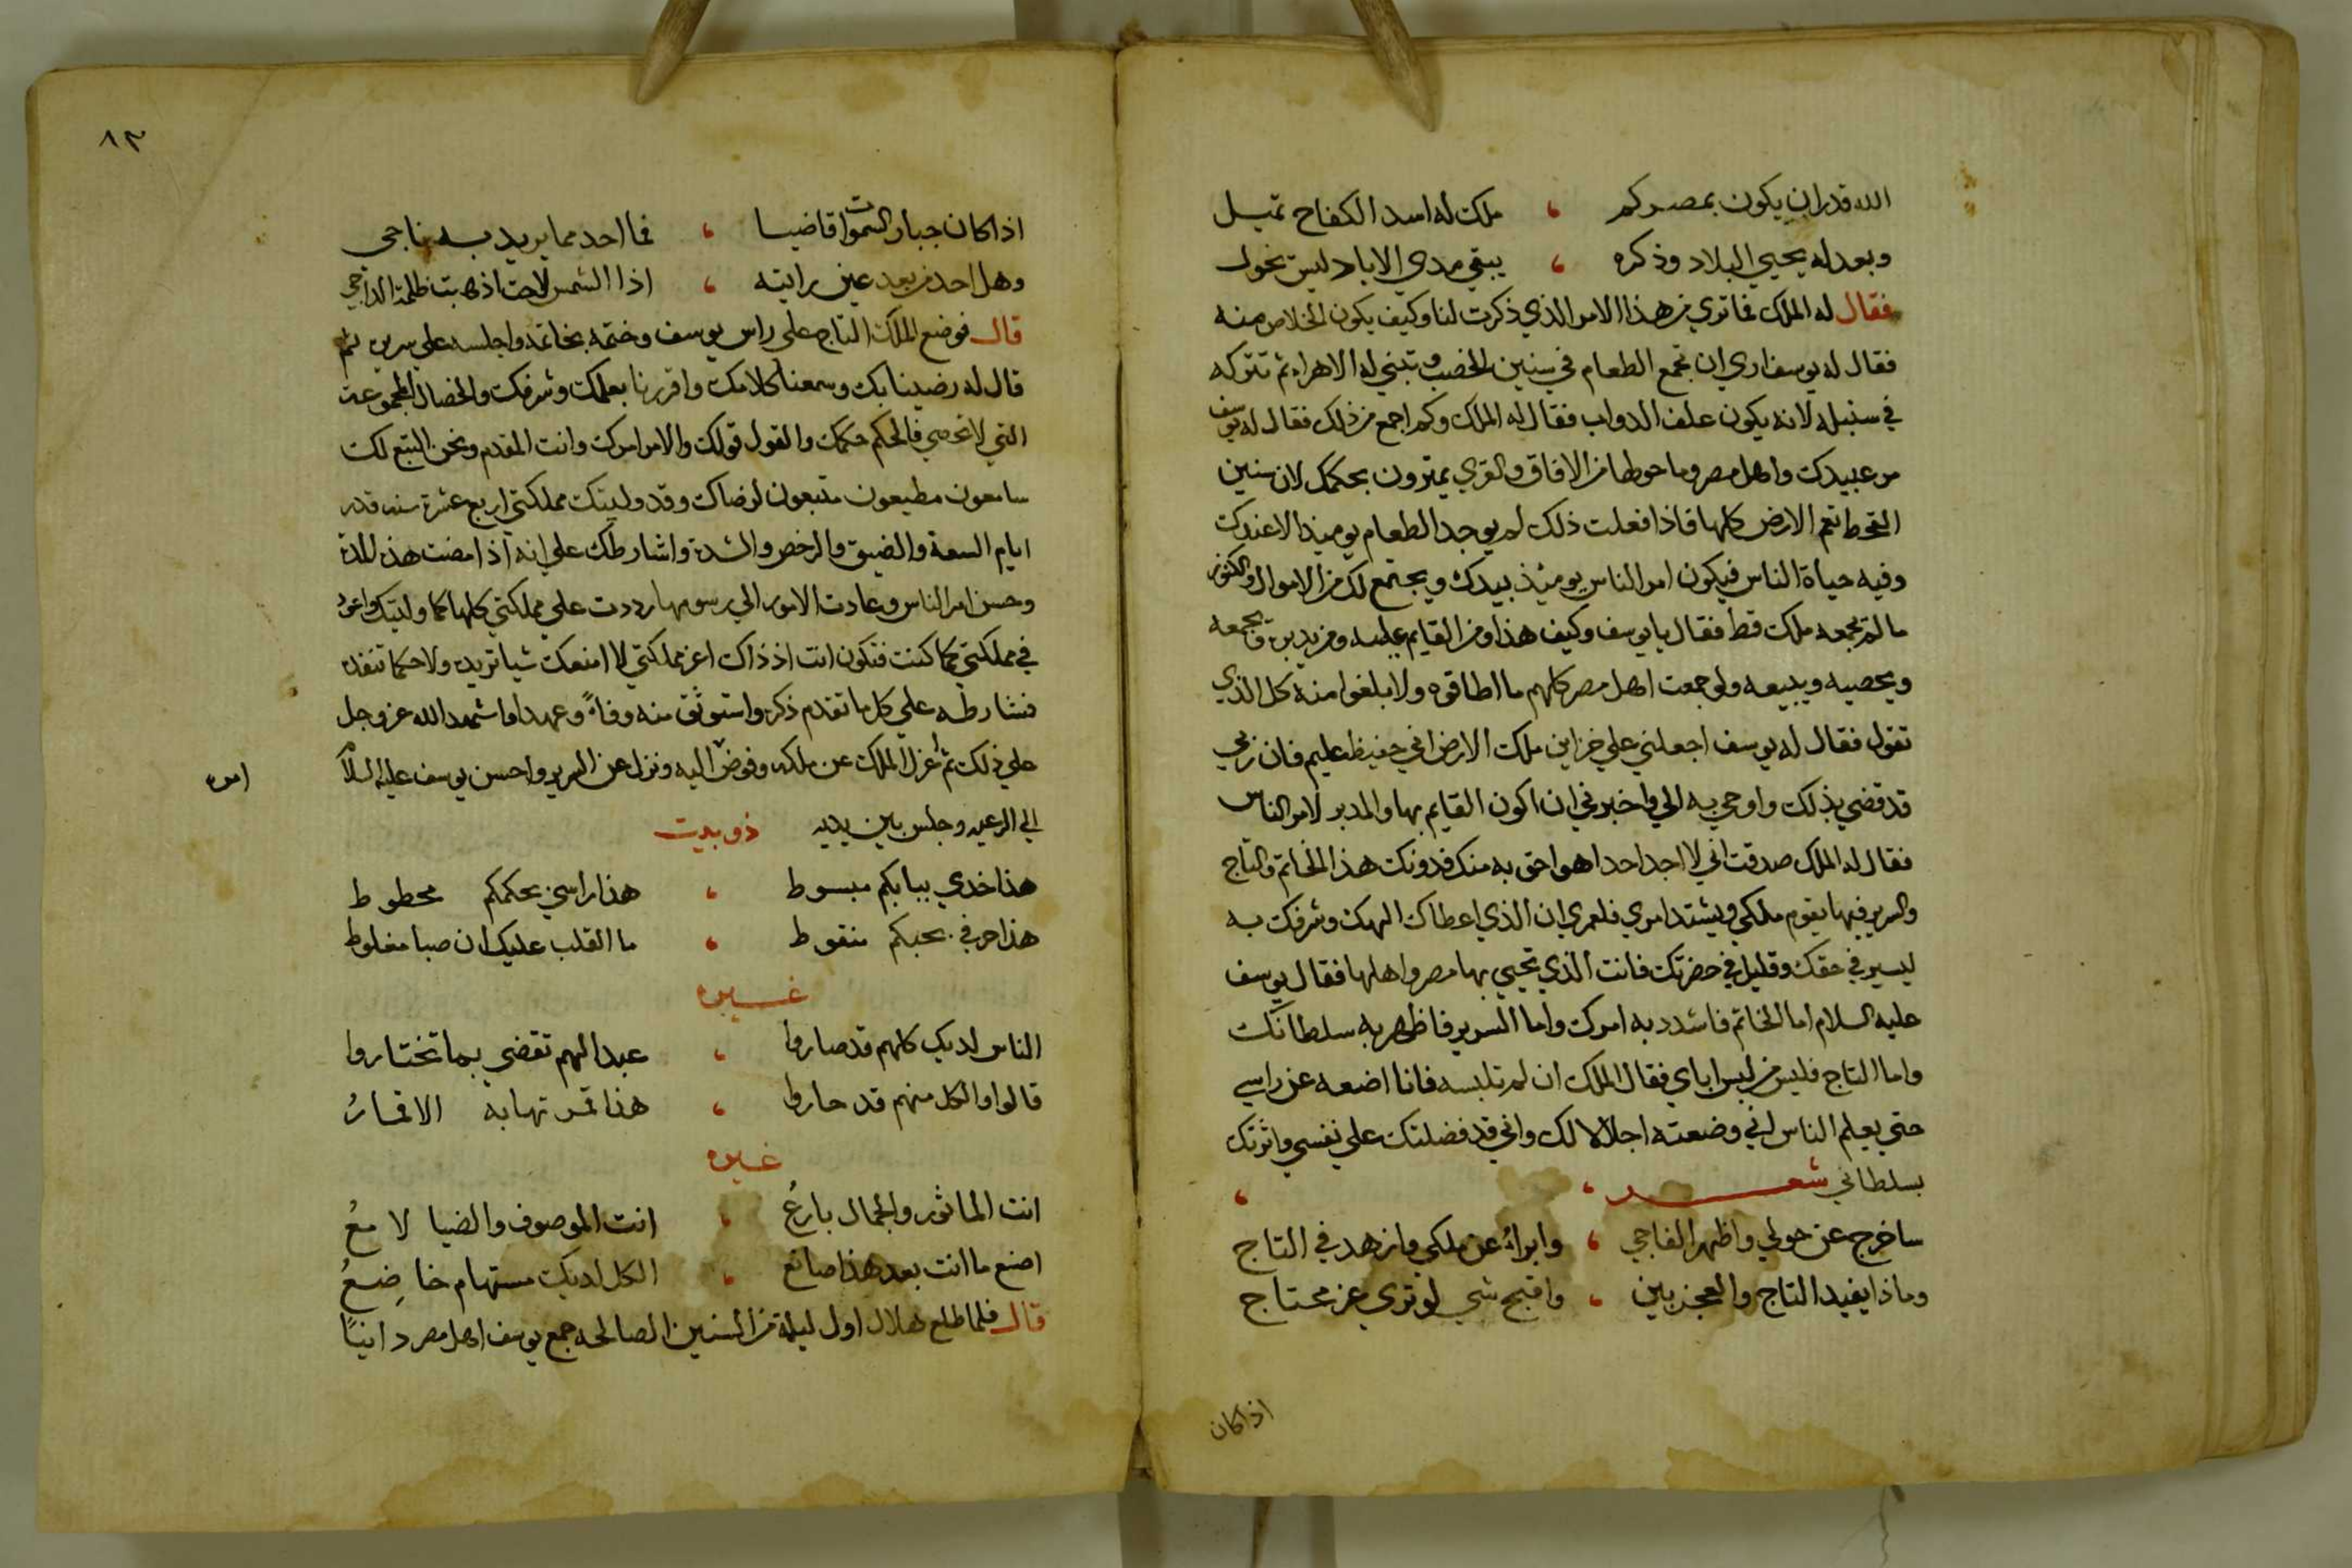 الله قدران يكون بمصركم ، ملك له اسد الكفاح تميل
وبعدله يحيي البلاد وذكره ، يبقي مدي الاباد ليس نحول
فقال له الملك فما تري من هذا الامر الذي ذكرت لنا وكيف يكون الخلاص منه
فقال له يوسف اري ان تجمع الطعام في سنين الخصب وتبني له الاهراء ثم تتركه
في سنبله لانه يكون علف الدواب فقال له الملك وكم اجمع من ذلك فقال له يوسف
من عبيدك واهل مصر وما حولها من الافاق والقري يمترون بحكمك لان سنين
القحط تعم الارض كلها فاذا فعلت ذلك لم يوجد الطعام يوميذ الا عندك
وفيه حياة الناس فيكون امر الناس يومئذ بيدك ويجتمع لك من الاموال والكنوز
مالم تجمعه ملك قط فقال يا يوسف وكيف هذا ومن القايم عليه ومن يدبره ويجمعه
ويحصيه ويبيعه ولو جمعت اهل مصر كلهم ما اطاقوه ولا بلغوا منه كل الذي
تقول فقال له يوسف اجعلني علي خزاين ملك الارض اني حفيظ عليم فان ربي
قد قضي بذلك واوحي به الي واخبرني ان اكون القايم بها والمدبر لامر الناس
فقال له الملك صدقت اني لا اجد احدا هو احق به منك فدونك هذا الخاتم والتاج
والسرير فبها يقوم ملكي ويشتد امري فلعمري ان الذي اعطاك الهك وشرفك به
ليسير في حقك وقليل في حضرتك فانت الذي تحيي بها مصر واهلها فقال يوسف
عليه السلام اما الخاتم فاشدد به امرك واما السرير فاظهر به سلطانك
واما التاج فليس من لبس اباي فقال الملك ان لم تلبسه فانا اضعه عن راسي
حتي يعلم الناس اني وضعته اجلالا لك واني قد فضلتك علي نفسي واثرتك
بسلطاني شعر ،
ساخرج عن حولي واظهر الفاجي ، وابرأ عن ملكي وازهد في التاج
وماذا يفيد التاج والعجز بين ، واقبح شي لو تري عز محتاج
اذا كان
٨٣
اذا كان جبار السموات قاضيا ، فما احد مما يريد به ناجي
وهل احد من بعد عين رايته ، اذا الشمس لاحت اذهبت ظلمة الداجي
قال فوضع الملك التاج علي راس يوسف وختمه بخاتمه واجلسه علي سريره ثم
قال له رضينا بك وسمعنا كلامك واقررنا بعلمك وشرفك والخصال المجموعة
التي لا تحصي فالحكم حكمك والقول قولك والامر امرك وانت المقدم ونحن التبع لك
سامعون مطيعون متبعون لرضاك وقد وليتك مملكتي اربع عشرة سنه قدر
ايام السعة والضيق والرخص والشدة واشارطك علي انه اذا مضت هذه المدة
وحسن امر الناس وعادت الامور الي رسومها رددت علي مملكتي كلها كما وليتك واعود
في مملكتي كما كنت فتكون انت اذ ذاك اعز مملكتي لا امنعك شيا تريده ولا حكما تنفذه
فشارطه علي كل ما تقدم ذكره واستوثق منه وفاءً وعهدا واشهد الله عز وجل
علي ذلك ثم اعزل الملك عن ملكه وفوض اليه ونزل عن السرير واحسن يوسف عليه السلام
امره
الي الرعيه وجلس بين يديه ذو بيت
هذا خدي ببابكم مبسوط ، هذا راسي بحكمكم محطوط
هذا حرفي بحبكم منقوط ، ما القلب عليك ان صبا مغلوط
غيره
الناس لديك كلهم قد صاروا ، عبدا لهم تقضي بما تختاروا
قالوا والكل منهم قد حاروا ، هذا قمر تهابه الاقمارُ
غيره
انت الماثور والجمال بارعُ ، انت الموصوف والضيا لامعُ
اصنع ما انت بعد هذا صانع ، الكل لديك مستهام خاضِعُ
قال فلما طلع هلال اول ليلة من السنين الصالحه جمع يوسف اهل مصر دانيًا